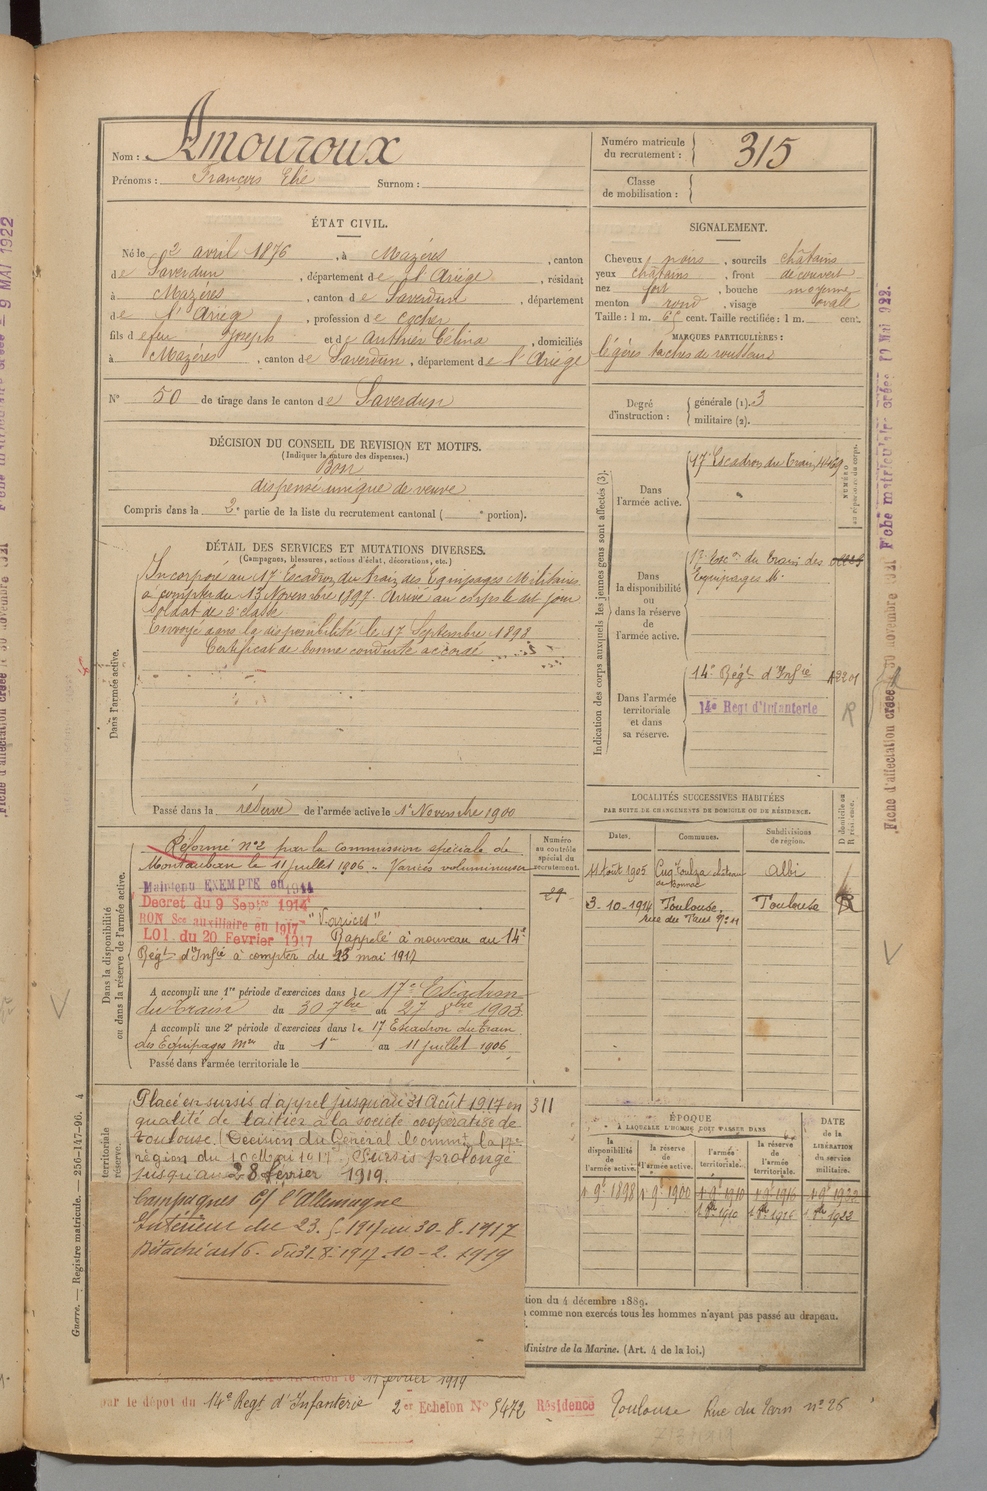 Nom : Amouroux
Prénoms : François Elie Surnom :
Numéro matricule du recrutement : 315
Classe de mobilisation :
ÉTAT CIVIL.
Né le 2 avril 1876, à Mazères, canton
de Saverdun, département de l'Ariège, résidant
à Mazères, canton de Saverdun, département
de l'Ariège, profession de cocher
fils de feu Joseph et de Authier Célina, domiciliés
à Mazères, canton de Saverdun, département de l'Ariège
N° 50 de tirage dans le canton de Saverdun
SIGNALEMENT.
Cheveux noirs, sourcils châtains
yeux châtains, front découvert
nez fort, bouche moyenne
menton rond, visage ovale
Taille : 1 m. 65 cent. Taille rectifiée : 1 m. cent.
MARQUES PARTICULIÈRES :
légères taches de rousseur
Degré d'instruction : générale (1). 3
militaire (2).
DÉCISION DU CONSEIL DE REVISION ET MOTIFS.
(Indiquer la nature des dispenses.)
Bon
dispensé unique de veuve
Compris dans la 2e partie de la liste du recrutement cantonal ( e portion).
DÉTAIL DES SERVICES ET MUTATIONS DIVERSES.
(Campagnes, blessures, actions d'éclat, décorations, etc.)
Dans l'armée active.
Incorporé au 17e Escadron du Train des Équipages Militaires
à compter du 13 Novembre 1897. Arrivé au corps le dit jour
Soldat de 2e classe
Envoyé dans la disponibilité le 17 Septembre 1898
Certificat de bonne conduite accordé
Passé dans la réserve de l'armée active le 1er Novembre 1900
Indication des corps auxquels les jeunes gens sont affectés (3).
NUMÉRO au répertoire du corps.
Dans l'armée active.
17e Escadron du Train
Dans la disponibilité ou dans la réserve de l'armée active.
17e Escon du Train des
Équipages M.
Dans l'armée territoriale et dans sa réserve.
14e Régt d'Infie
14e Régt d'Infanterie
R
LOCALITÉS SUCCESSIVES HABITÉES
PAR SUITE DE CHANGEMENTS DE DOMICILE OU DE RÉSIDENCE.
Dates. Communes. Subdivisions de région. D domicile ou R résidence.
Août 1905 Cuq Toulza château de Bonnac Albi
3-10-1914 Toulouse Toulouse R
Dans la disponibilité ou dans la réserve de l'armée active.
Numéro au contrôle spécial du recrutement.
29
Réformé n°2 par la commission spéciale de
Montauban le 11 juillet 1906. Varices volumineuses
Maintenu EXEMPTÉ en 1914
Décret du 9 Septbre 1914
BON Sce auxiliaire en 1917 "Varices"
LOI du 20 Février 1917 Rappelé à nouveau au 14e
Régt d'Infie à compter du 23 mai 1917
A accompli une 1re période d'exercices dans le 17e Escadron
du Train du 30 7bre au 27 8bre 1903
A accompli une 2e période d'exercices dans le 17 Escadron du Train
des Equipages Mres du 1er au 11 juillet 1906
Passé dans l'armée territoriale le
territoriale
réserve.
Placé en sursis d'appel jusqu'au 31 Août 1917 en 311
qualité de laitier à la société coopérative de
Toulouse. (Décision du Général Commt la 17e
région du 10 1917) Sursis prolongé
jusqu'au 28 février 1919.
Campagnes C/ l'Allemagne
Intérieur du 23.5.1917 au 30-8-1917
Détaché art 6. du 31.8.1917 10-2.1919
ÉPOQUE
A LAQUELLE L'HOMME DOIT PASSER DANS
la disponibilité de l'armée active.
la réserve de l'armée active.
l'armée territoriale.
la réserve de l'armée territoriale.
DATE de la LIBÉRATION du service militaire.
1 9e 1898 1 9e 1900 1 9e 1910 1 9e 1916 1 9e 1922
tion du 4 décembre 1889.
comme non exercés tous les hommes n'ayant pas passé au drapeau.
Ministre de la Marine. (Art. 4 de la loi.)
11 février 1919
par le dépôt du 14e Regt d'Infanterie 2er Echelon No 5472 Résidence Toulouse Rue du Tarn no 26
Guerre. — Registre matricule. — 256-147-96. 4
Fiche d'affectation créée le 30 novembre 1921 Fiche matriculaire créée 19 Mai 1922.